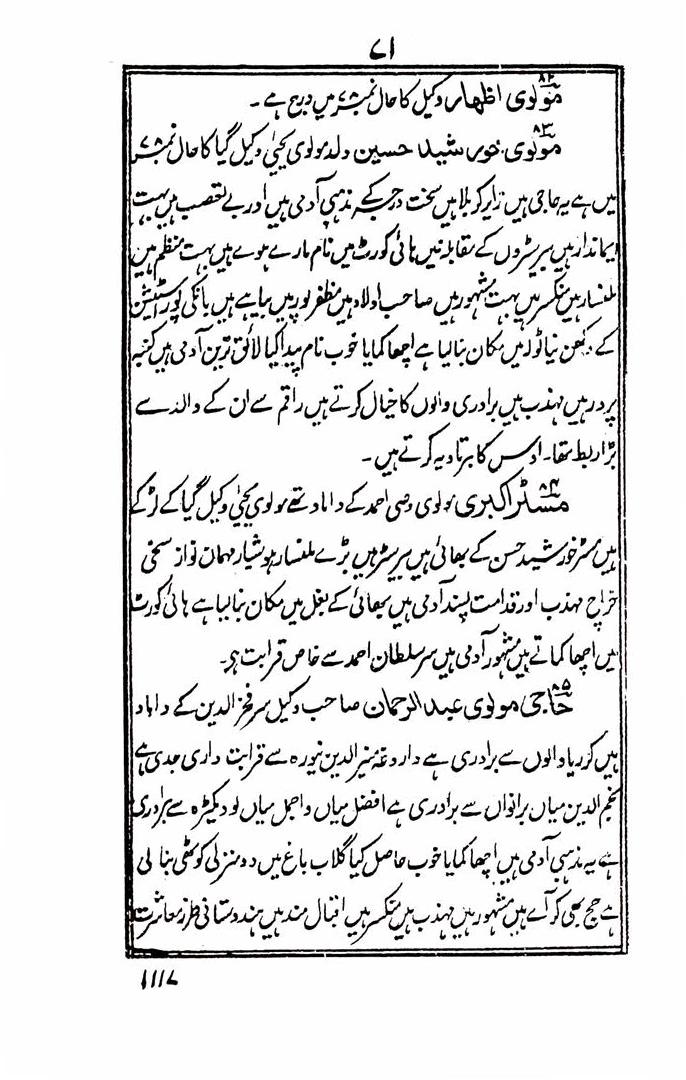 ۷۱
۸۲ مولوی اظہار وکیل کا حال نمبر ۷۸ میں درج ہے ۔
۸۳ مولوی خورشید حسین ولد مولوی یحییٰ وکیل گیا کا حال نمبر ۷۸
میں ہے یہ حاجی ہیں زایر کربلا ہیں سخت درجہ کے مذہبی آدمی ہیں اور بے تعصب ہیں بہت
ایماندار ہیں بیرسٹروں کے مقابلہ میں ہائی کورٹ میں نام مارے ہوے ہیں بہت منظم ہیں
ملنسار ہیں منکسر ہیں بہت مشہور ہیں صاحب اولاد ہیں مظفر پور میں بیاہے ہیں بانکی پور اسٹیشن
کے دکھن نیا ٹولہ میں مکان بنالیا ہے اچھا کمایا خوب نام پیدا کیا لائق ترین آدمی ہیں کنبہ
پرور ہیں مہذب ہیں برادری والوں کا خیال کرتے ہیں راقم سے ان کے والد سے
بڑا ربط تھا۔ اوس کا برتاو یہ کرتے ہیں ۔
۸۴ مسٹر اکبری مولوی وصی احمد کے داماد تھے مولوی یحییٰ وکیل گیا کے لڑکے
ہیں مسٹر خورشید حسن کے بھائی ہیں بیرسٹر ہیں بڑے ملنسار ہوشیار مہمان نواز سخی
خراج مہذب اور قدامت پسند آدمی ہیں بھائی کے بغل میں مکان بنالیا ہے ہائی کورٹ
میں اچھا کماتے ہیں مشہور آدمی ہیں سر سلطان احمد سے خاص قرابت ہے۔
۸۵ حاجی مولوی عبدالرحمان صاحب وکیل سر فخر الدین کے داماد
ہیں کزریا والوں سے برادری ہے داروغہ منیر الدین نیورہ سے قرابت داری جدی ہے
نجم الدین میاں برانواں سے برادری ہے افضل میاں واجل میاں لودیکڑہ سے برادری
ہے یہ مذہبی آدمی ہیں اچھا کمایا خوب حاصل کیا گلاب باغ میں دو منزلی کوٹھی بنا لی
ہے حج بھی کر آے ہیں مشہور ہیں مہذب ہیں منکسر ہیں اقبال مند ہیں ہندوستانی طرز معاشرت
۱۱۱۷